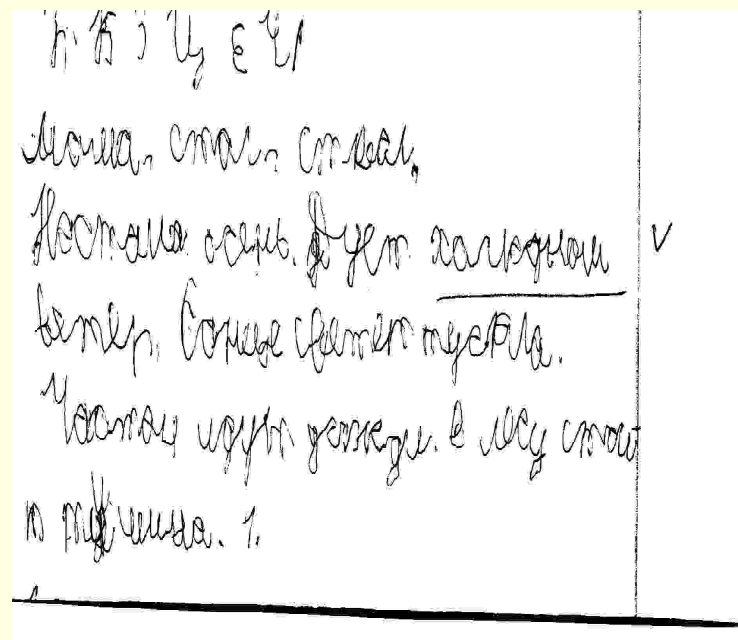 Ц Е Ч
стал. ствал.
Настала осень. Дует халодном
ветер. Сонце светет тускла.
Частои идут дожди. в лесу стои
т тишина. 1.